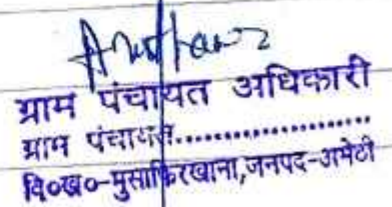 ग्राम पंचायत अधिकारी
ग्राम पंचायत......................
वि०ख०-मुसाफिरखाना,जनपद-अमेठी